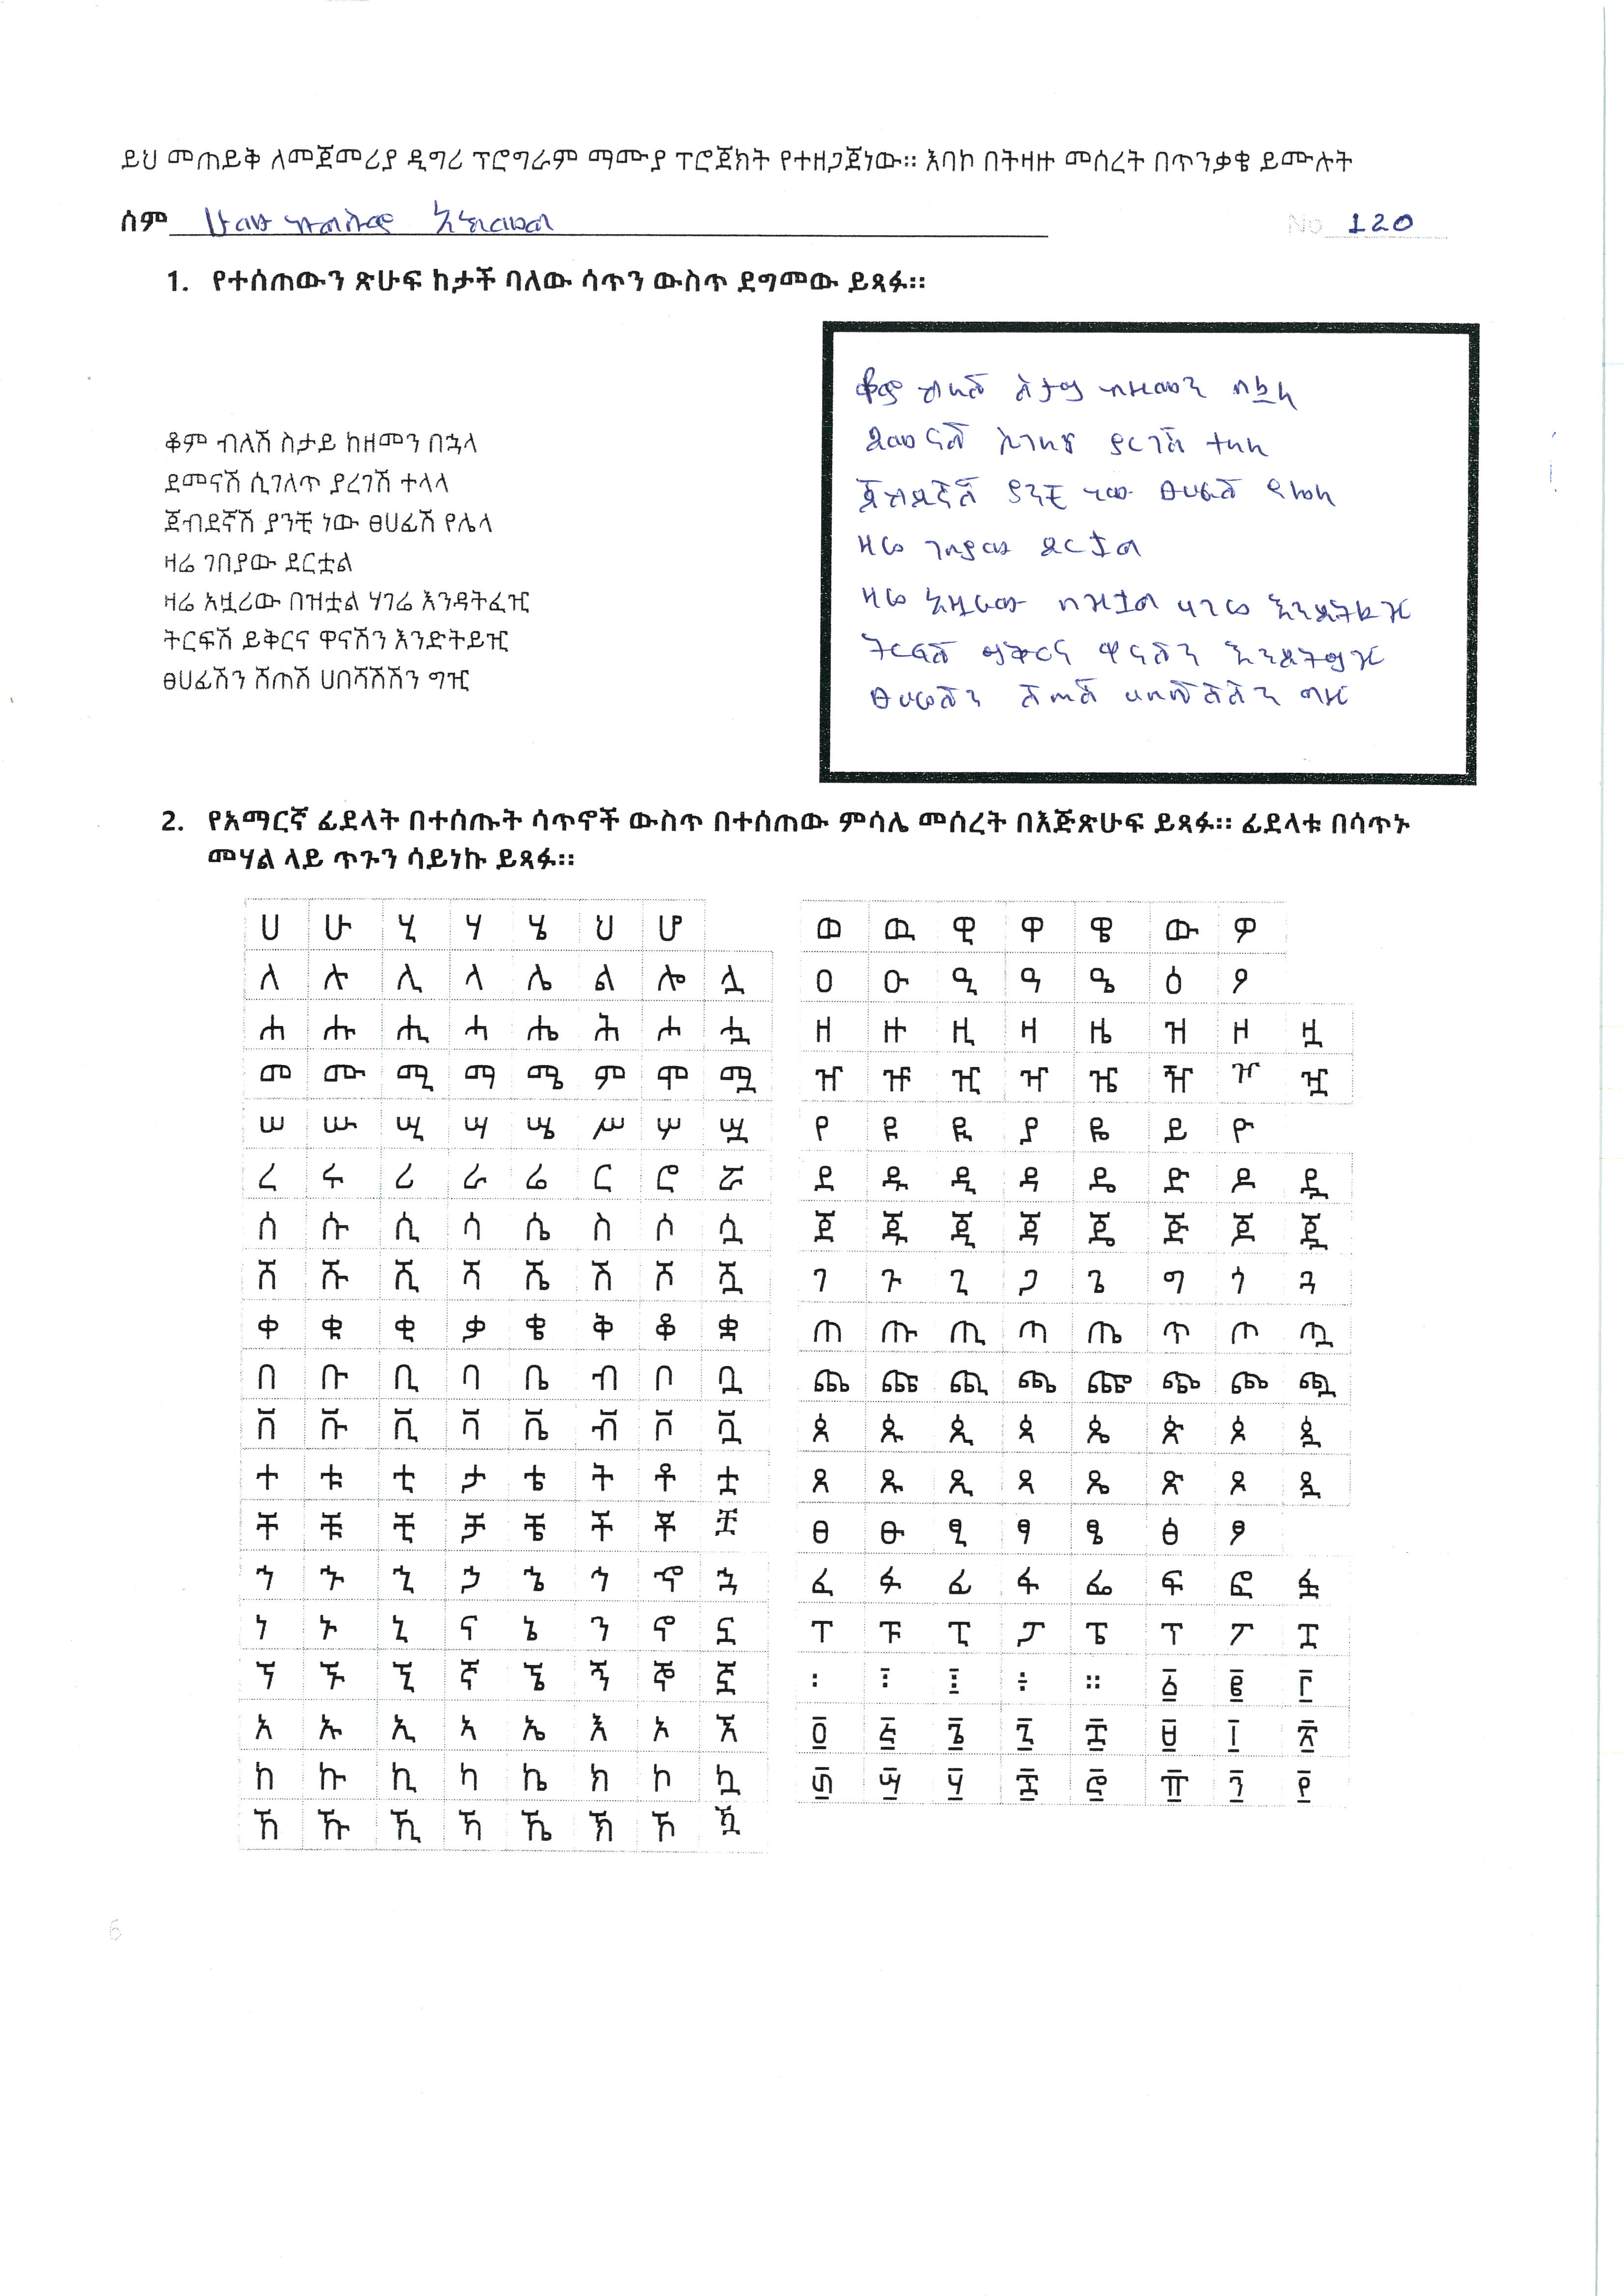 ይህ መጠይቅ ለመጀመሪያ ዲግሪ ፕሮግራም ማሙያ ፕሮጀክት የተዘጋጀነው። እባኮ በትዛዙ መሰረት በጥንቃቄ ይሙሉት
ስም
No 120
1. የተሰጠውን ጽሁፍ ከታች ባለው ሳጥን ውስጥ ደግመው ይጻፉ።
ቆም ብለሽ ስታይ ከዘመን በኋላ
ደመናሽ ሲገለጥ ያረገሽ ተላላ
ጀብደኛሽ ያንቺ ነው ፀሀፊሽ የሌላ
ዛሬ ገበያው ደርቷል
ዛሬ አዟሪው በዝቷል ሃገሬ እንዳትፈዢ
ትርፍሽ ይቅርና ዋናሽን እንድትይዢ
ፀሀፊሽን ሸጠሽ ሀበሻሽሽን ግዢ
ቆም ብለሽ ስታይ ከዘመን በኋላ
ደመናሽ ሲገለጥ ያረገሽ ተላላ
ጀብደኛሽ ያንቺ ነው ፀሀፊሽ የሌላ
ዛሬ ገበያው ደርቷል
ዛሬ አዟሪው በዝቷል ሃገሬ እንዳትፈዢ
ትርፍሽ ይቅርና ዋናሽን እንድትይዢ
ፀሀፊሽን ሸጠሽ ሀበሻሽሽን ግዢ
2. የአማርኛ ፊደላት በተሰጡት ሳጥኖች ውስጥ በተሰጠው ምሳሌ መሰረት በእጅጽሁፍ ይጻፉ። ፊደላቱ በሳጥኑ
መሃል ላይ ጥጉን ሳይነኩ ይጻፉ።
ሀ ሁ ሂ ሃ ሄ ህ ሆ
ለ ሉ ሊ ላ ሌ ል ሎ ሏ
ሐ ሑ ሒ ሓ ሔ ሕ ሖ ሗ
መ ሙ ሚ ማ ሜ ም ሞ ሟ
ሠ ሡ ሢ ሣ ሤ ሥ ሦ ሧ
ረ ሩ ሪ ራ ሬ ር ሮ ሯ
ሰ ሱ ሲ ሳ ሴ ስ ሶ ሷ
ሸ ሹ ሺ ሻ ሼ ሽ ሾ ሿ
ቀ ቁ ቂ ቃ ቄ ቅ ቆ ቋ
በ ቡ ቢ ባ ቤ ብ ቦ ቧ
ቨ ቩ ቪ ቫ ቬ ቭ ቮ ቯ
ተ ቱ ቲ ታ ቴ ት ቶ ቷ
ቸ ቹ ቺ ቻ ቼ ች ቾ ቿ
ኀ ኁ ኂ ኃ ኄ ኅ ኆ ኋ
ነ ኑ ኒ ና ኔ ን ኖ ኗ
ኘ ኙ ኚ ኛ ኜ ኝ ኞ ኟ
አ ኡ ኢ ኣ ኤ እ ኦ ኧ
ከ ኩ ኪ ካ ኬ ክ ኮ ኳ
ኸ ኹ ኺ ኻ ኼ ኽ ኾ ዃ
ወ ዉ ዊ ዋ ዌ ው ዎ
ዐ ዑ ዒ ዓ ዔ ዕ ዖ
ዘ ዙ ዚ ዛ ዜ ዝ ዞ ዟ
ዠ ዡ ዢ ዣ ዤ ዥ ዦ ዧ
የ ዩ ዪ ያ ዬ ይ ዮ
ደ ዱ ዲ ዳ ዴ ድ ዶ ዷ
ጀ ጁ ጂ ጃ ጄ ጅ ጆ ጇ
ገ ጉ ጊ ጋ ጌ ግ ጎ ጓ
ጠ ጡ ጢ ጣ ጤ ጥ ጦ ጧ
ጨ ጩ ጪ ጫ ጬ ጭ ጮ ጯ
ጰ ጱ ጲ ጳ ጴ ጵ ጶ ጷ
ጸ ጹ ጺ ጻ ጼ ጽ ጾ ጿ
ፀ ፁ ፂ ፃ ፄ ፅ ፆ
ፈ ፉ ፊ ፋ ፌ ፍ ፎ ፏ
ፐ ፑ ፒ ፓ ፔ ፕ ፖ ፗ
፡ ፧ ፨ ፥ ። ፩ ፪ ፫
፬ ፭ ፮ ፯ ፰ ፱ ፲ ፳
፴ ፵ ፶ ፷ ፸ ፹ ፺ ፻